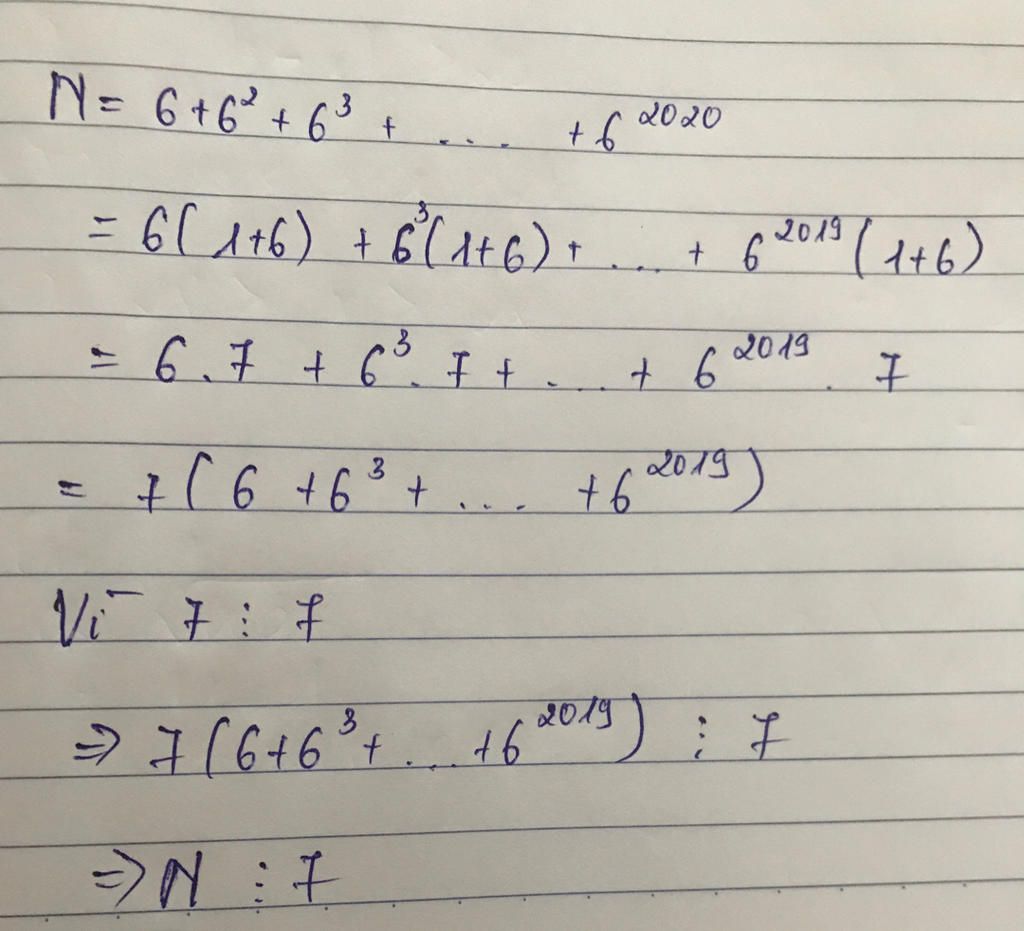 N = 6 + 6² + 6³ + .... + 6²⁰²⁰
= 6( 1+6) + 6³(1+6) + .... + 6²⁰¹⁹ (1+6)
= 6 . 7 + 6³ . 7 + .... + 6²⁰¹⁹ . 7
= 7 ( 6 + 6³ + .... + 6²⁰¹⁹ )
Vì 7 ⋮ 7
⇒ 7 ( 6+6³+ .... +6²⁰¹⁹ ) ⋮ 7
⇒ N ⋮ 7